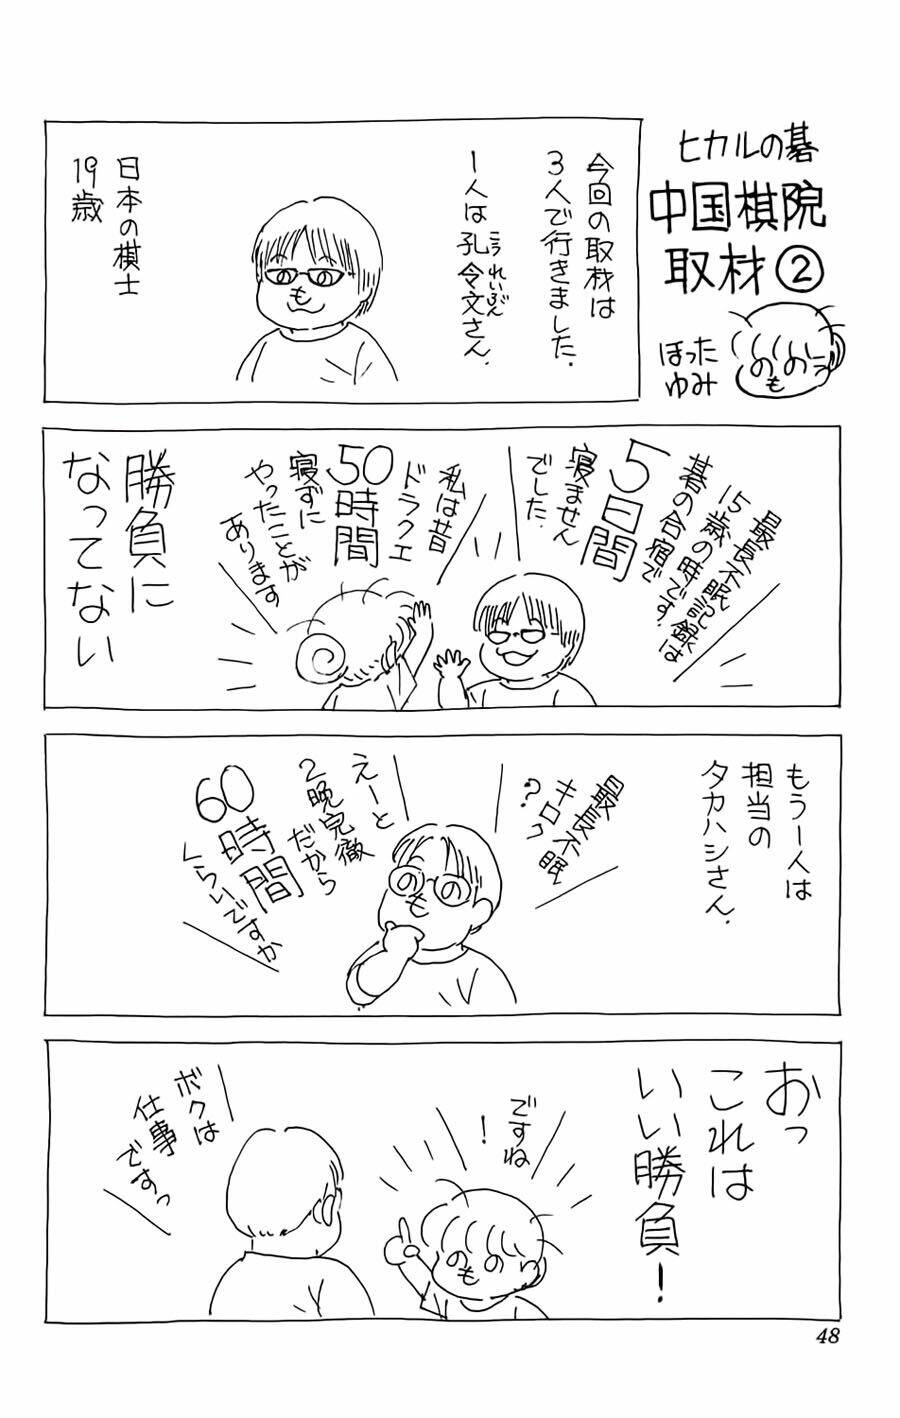 ヒカルの碁
中国棋院
取材②
ほった
ゆみ
今回の取材は
3人で行きました.
1人は孔令文さん.
こうれいぶん
日本の棋士
19歳
最長不眠記録は
15歳の時です.
碁の合宿で
5日間
寝ません
でした.
私は昔
ドラクエ
50時間
寝ずに
やったことが
あります
勝負に
なってない
もう1人は
担当の
タカハシさん.
最長不眠
キロク
?
えーと
2晩完徹
だから
60時間
くらいですか
おっ
これは
いい勝負!
ですね
!
ボクは
仕事
ですっ
48